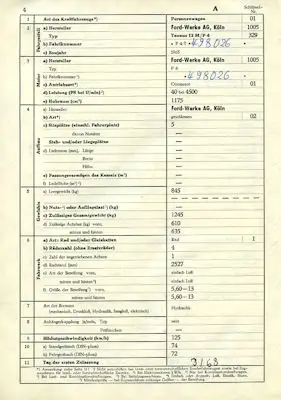 4 A Schlüssel-Nr.
1 Art des Kraftfahrzeugs*) Personenwagen 01
2 Fahrgestell a) Hersteller Ford-Werke AG, Köln 1005
Typ Taunus 12 M/P 4 329
b) Fabriknummer • P 4 7 • 498026
c) Baujahr 1965
3 Motor a) Hersteller Ford-Werke AG, Köln 1005
Typ P 4
b) Fabriknummer • 498026 •
c) Antriebsart 01
d) Leistung (PS bei U/min) 40 bei 4500
e) Hubraum (cm³) 1175
4 Aufbau a) Hersteller Ford-Werke AG, Köln
b) Art geschlossen 02
c) Sitzplätze (einschl. Fahrerplatz) 5
davon Notsitze —
Steh- und/oder Liegeplätze —
d) Laderaum (mm), Länge —
Breite —
Höhe —
e) Fassungsvermögen des Kessels (m³) —
f) Ladefläche (m²) —
5 Gewichte a) Leergewicht (kg) 845
b) Nutz- oder Aufliegelast (kg) —
c) Zulässiges Gesamtgewicht (kg) 1245
d) Zulässige Achslast (kg) vorn 610
mitten und hinten 635
6 Fahrwerk a) Art: Rad und/oder Gleisketten Rad 1
b) Räderzahl (ohne Ersatzräder) 4
c) Zahl der angetriebenen Achsen 1
d) Radstand (mm) 2527
e) Art der Bereifung vorn einfach Luft
mitten und hinten einfach Luft
f) Größe der Bereifung vorn 5,60—13
mitten und hinten 5,60—13
7 Art der Bremsen Hydraulik
(mechanisch, Druckluft, Hydraulik, Saugluft, elektrisch)
8 Anhängerkupplung nein
Prüfzeichen —
9 Höchstgeschwindigkeit (km/h) 125
10 a) Standgeräusch (DIN-phon) 74
b) Fahrgeräusch (DIN-phon) 72
11 Tag der ersten Zulassung